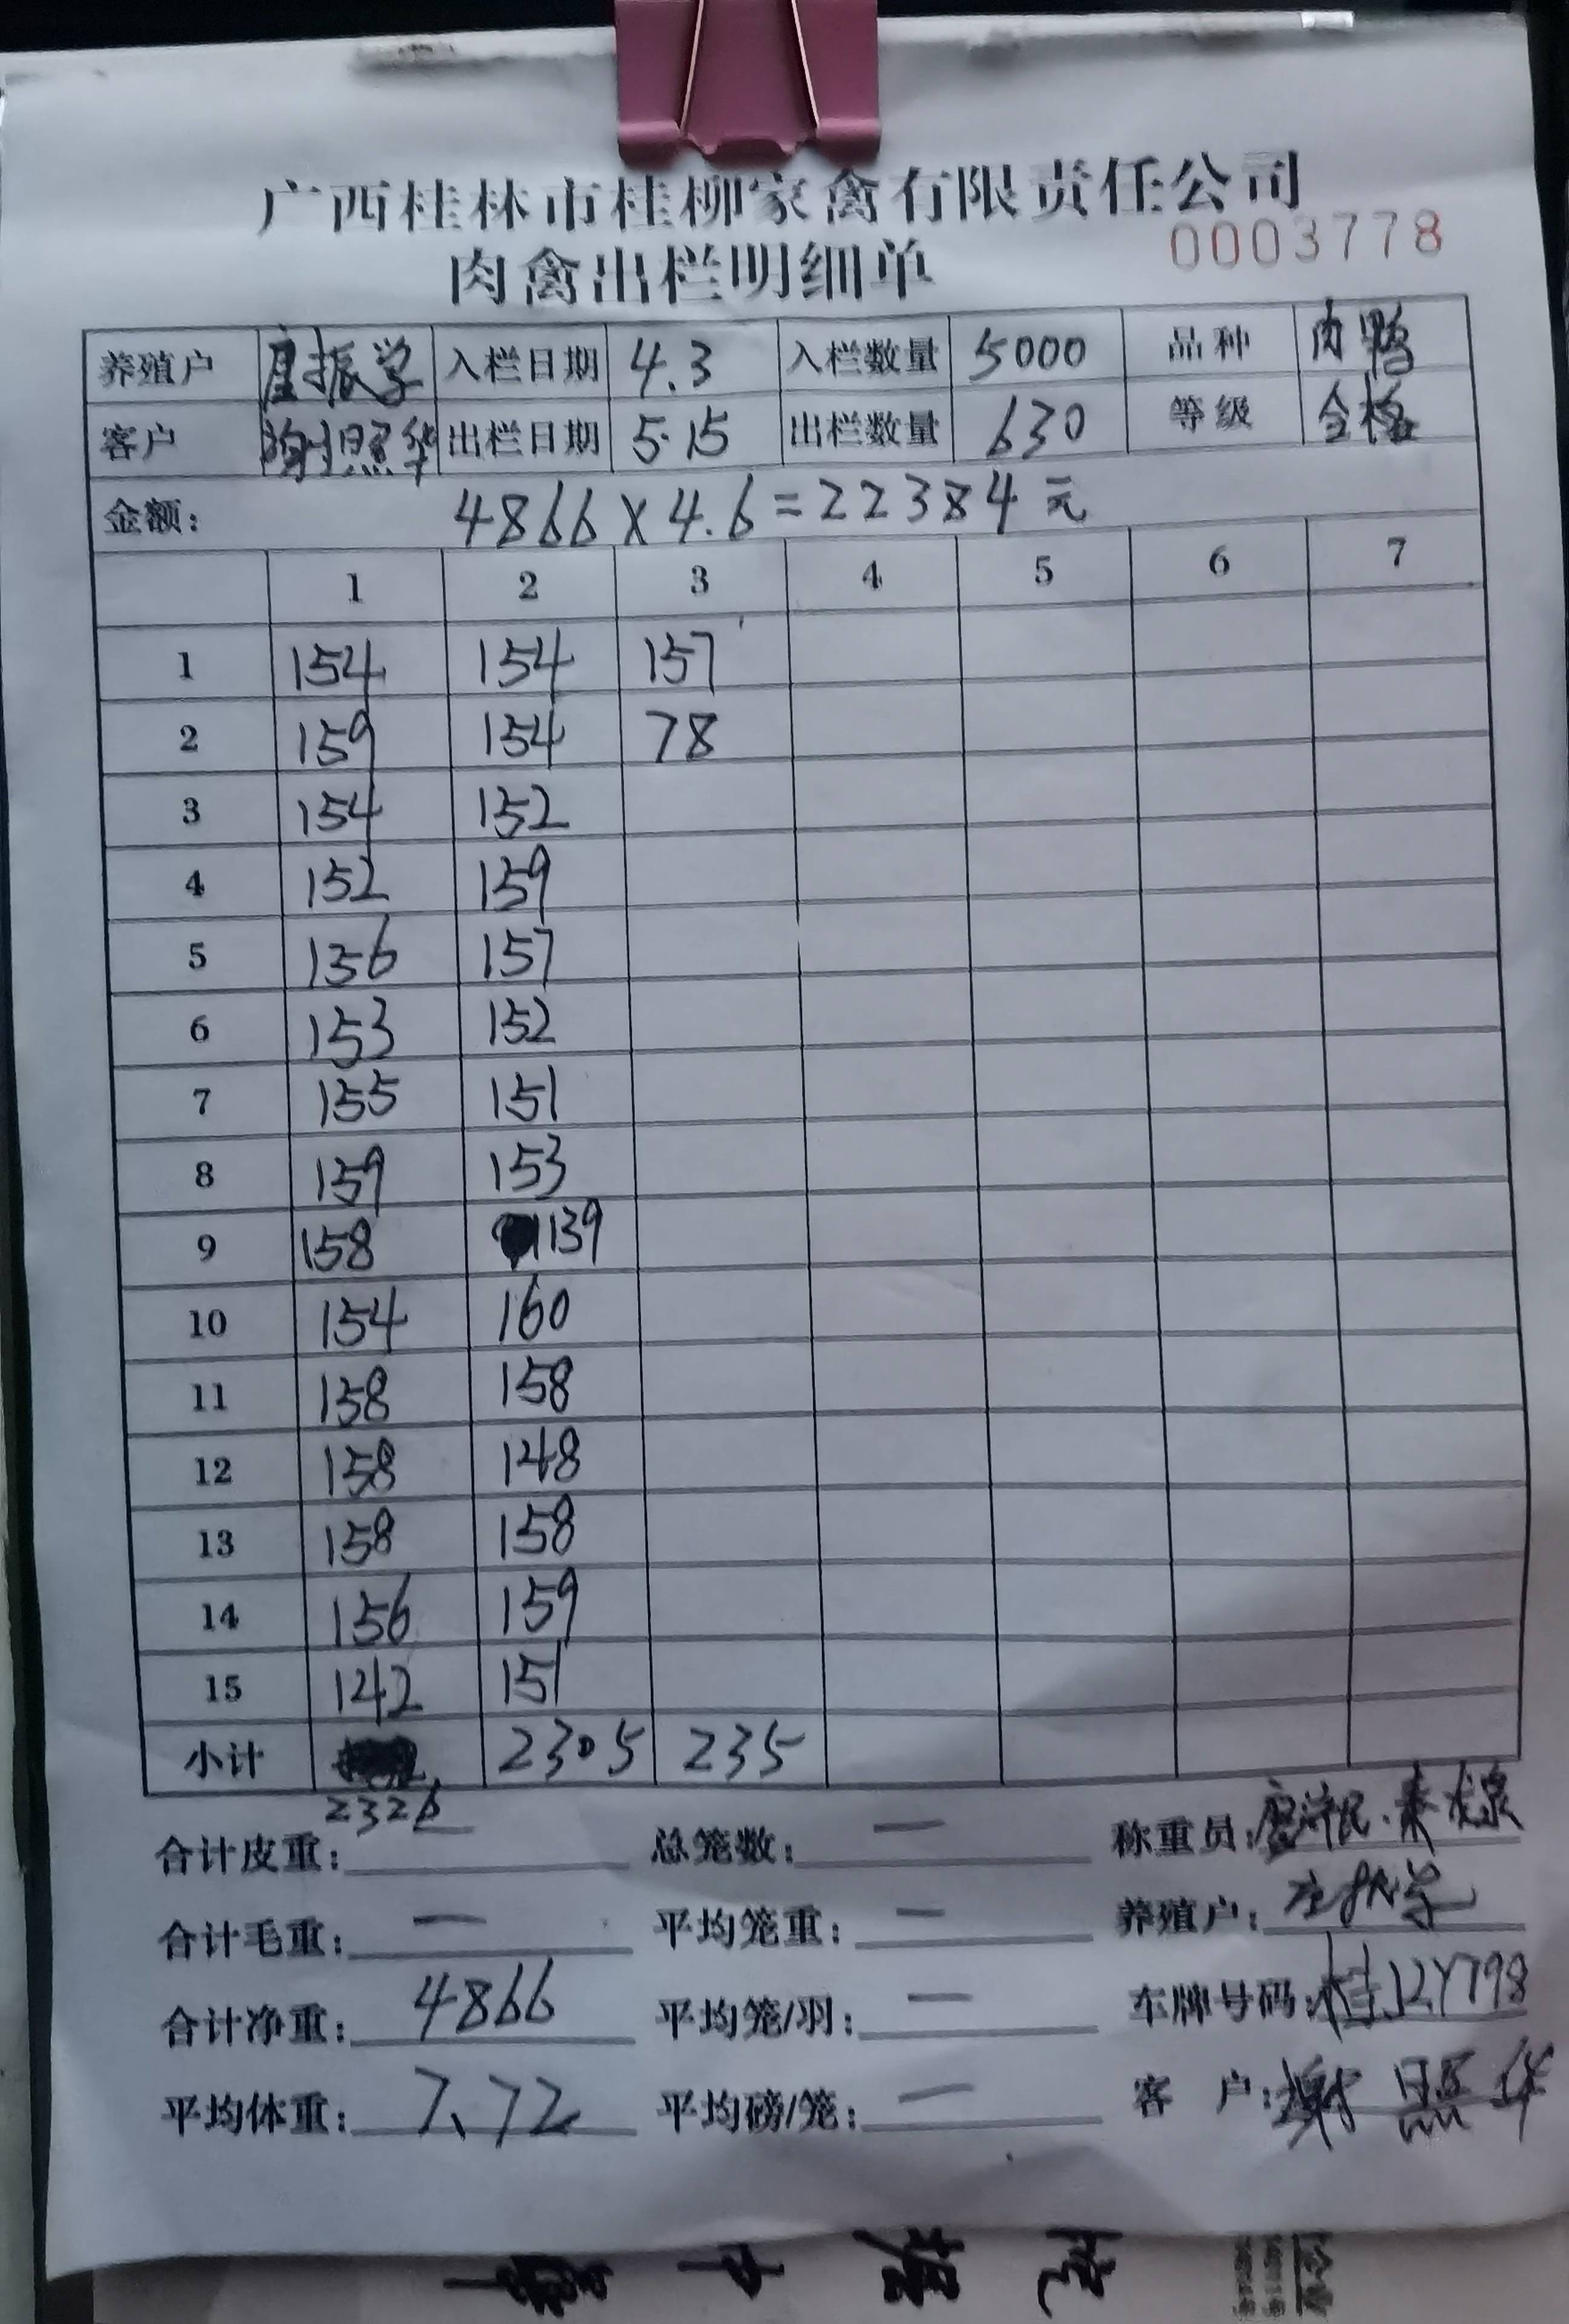 广西桂林市桂柳家禽有限责任公司
肉禽出栏明细单 0003778
养殖户 唐振学 入栏日期 4.3 入栏数量 5000 品种 肉鸭
客户 谢照华 出栏日期 5.15 出栏数量 630 等级 合格
金额: 4866×4.6=22384元
1 2 3 4 5 6 7
1 154 154 157
2 159 154 78
3 154 152
4 152 159
5 156 157
6 153 152
7 155 151
8 159 153
9 158 139
10 154 160
11 158 158
12 158 148
13 158 158
14 156 159
15 142 151
小计 2326 2305 235
合计皮重: 总笼数: — 称重员:
合计毛重: — 平均笼重: — 养殖户: 唐振学
合计净重: 4866 平均笼/羽: — 车牌号码: 桂J2Y798
平均体重: 7.72 平均磅/笼: — 客户: 谢照华